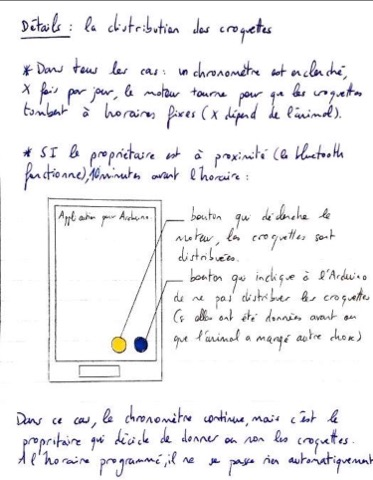 Détails : la distribution des croquettes
* Dans tous les cas : un chronomètre est enclenché,
X fois par jour, le moteur tourne pour que les croquettes
tombent à horaires fixes (X dépend de l'animal).
* SI le propriétaire est à proximité (le bluetooth
fonctionne), 10 minutes avant l'horaire :
Application pour Arduino.
bouton qui déclenche le
moteur, les croquettes sont
distribuées.
bouton qui indique à l'Arduino
de ne pas distribuer les croquettes
(si elles ont été données avant ou
que l'animal a mangé autre chose)
Dans ce cas, le chronomètre continue, mais c'est le
propritaire qui décide de donner ou non les croquettes.
A l'horaire programmé, il ne se passe rien automatiquement